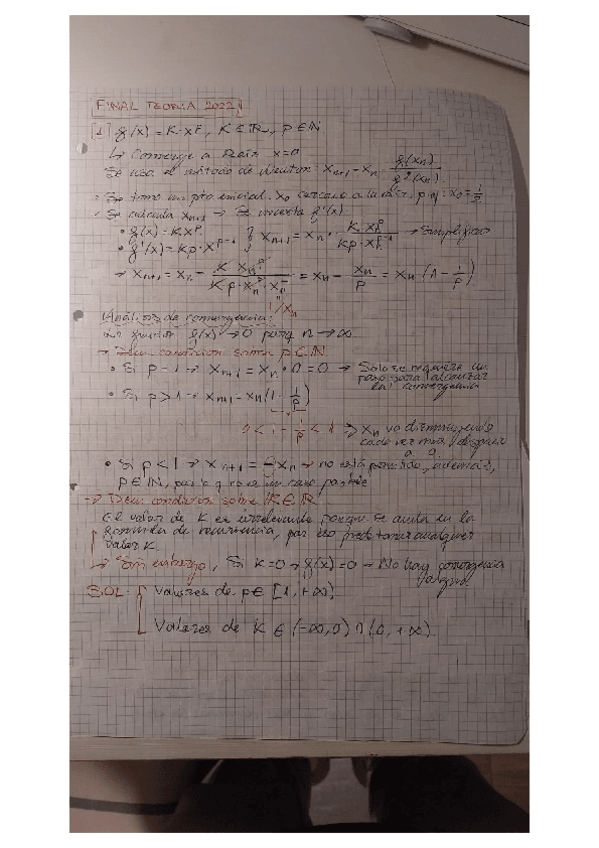 FINAL TEORIA 2022
1 f(x) = K·x^p, K∈ℝ, p∈ℕ
↳ Converge a raíz x=0
Se usa el método de Newton: x_{n+1} = x_n - f(x_n)/f'(x_n)
· Se toma un pto inicial x_0 cercano a la raíz. p.ej: x_0 = 1/p
· Se calcula x_{n+1} → Se necesita f'(x)
• f(x) = Kx^p
• f'(x) = Kp·x^{p-1} } x_{n+1} = x_n - K·x_n^p/Kp·x_n^{p-1} → Simplificar
→ x_{n+1} = x_n - K·x_n^p/Kp·x_n^p·x_n^{-1} = x_n - x_n/p = x_n(1 - 1/p)
1/x_n
Análisis de convergencia:
La función f(x) → 0 para n → ∞
→ Deducir condición sobre p∈ℕ
• Si p=1 → x_{n+1} = x_n·0 = 0 → Solo se requiere un
paso para alcanzar
la convergencia
• Si p>1 → x_{n+1} = x_n(1 - 1/p)
0 < 1 - 1/p < 1 → x_n va disminuyendo
cada vez más
a 0.
• Si p<1 → x_{n+1} = -x_n → no está permitido, además,
p∈ℕ, caso posible
→ Deducir condición sobre K∈ℝ
El valor de K es irrelevante porque se anula en la
fórmula de recurrencia, por eso puede tomar cualquier
valor K.
→ Sin embargo, Si K=0 → f(x)=0 → No hay convergencia
alguna
SOL: Valores de p∈ [1,+∞)
Valores de K ∈ (-∞,0)∩(0,+∞)